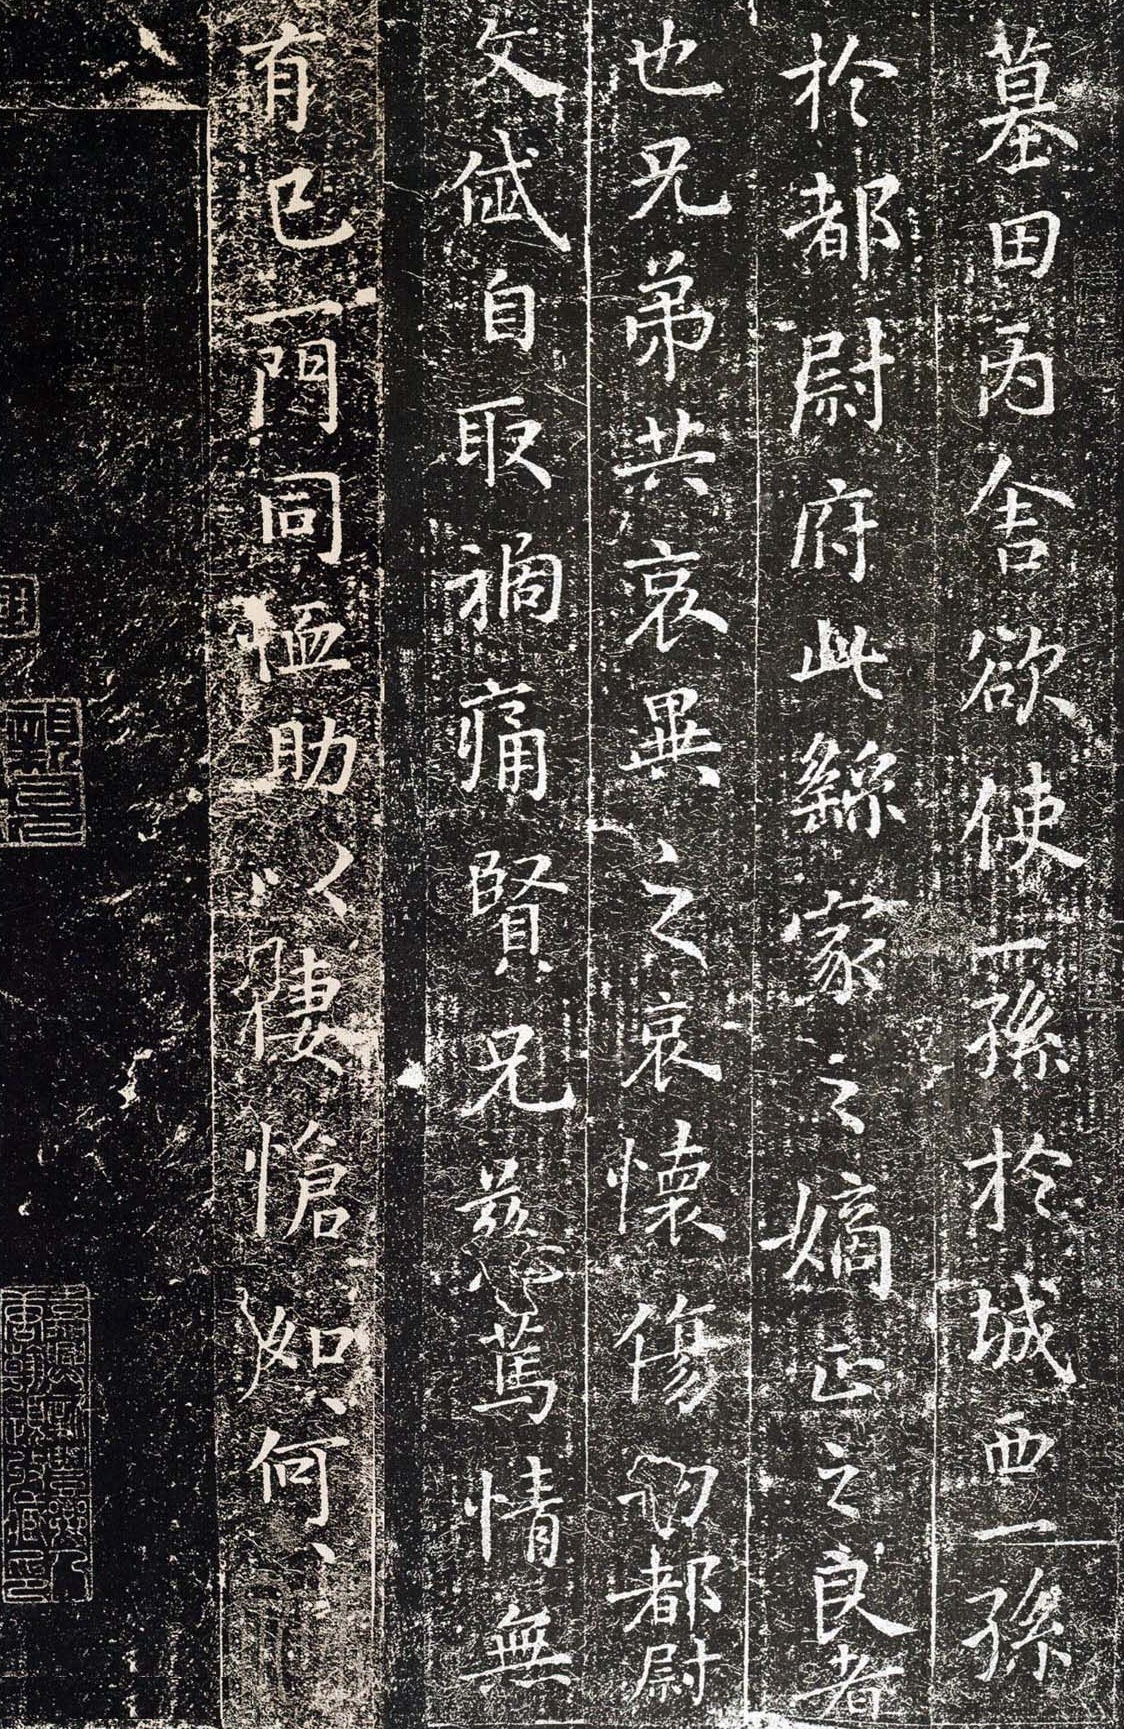 墓田丙舍欲使一孫於城西一孫
於都尉府此繇家之嫡正之良者
也兄弟共哀異之哀懷傷切都尉
文岱自取禍痛賢兄慈篤情無
有已一門同恤助以悽愴如何如何